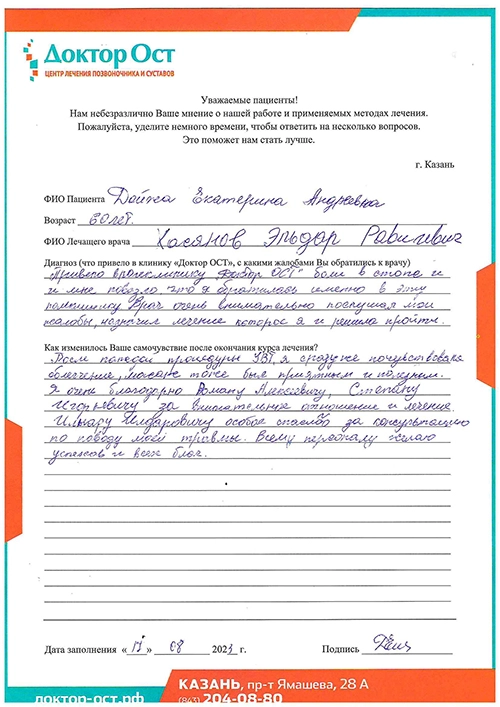 Доктор Ост
ЦЕНТР ЛЕЧЕНИЯ ПОЗВОНОЧНИКА И СУСТАВОВ
Уважаемые пациенты!
Нам небезразлично Ваше мнение о нашей работе и применяемых методах лечения.
Пожалуйста, уделите немного времени, чтобы ответить на несколько вопросов.
Это поможет нам стать лучше.
г. Казань
ФИО Пациента Екатерина Андреевна
Возраст 60 лет.
ФИО Лечащего врача Хасянов Эльдар Равилевич
Диагноз (что привело в клинику «Доктор ОСТ», с какими жалобами Вы обратились к врачу)
Привело в поликлинику Доктор ОСТ" боли в стопа и
и мне повезло. что я обратилась именно в эту
Врач очень внимательно послушал мои
жалобы, назначил лечение которое я и решила пройти.
Как изменилось Ваше самочувствие после окончания курса лечения?
После процедуры УВТ я сразу же почувствовала
облегчение, тоже был приятным и полезным.
Я очень благодарна Роману Алексеевичу, Степану
Игорьевичу за внимательное отношение и лечение.
Ильдаровичу особое спасибо за консультацию
по поводу моей травмы. Всему персоналу желаю
успехов и всех благ.
Дата заполнения « 17 » 08 2023 г. Подпись
доктор-ост.рф
КАЗАНЬ, пр-т Ямашева, 28 А
(843) 204-08-80